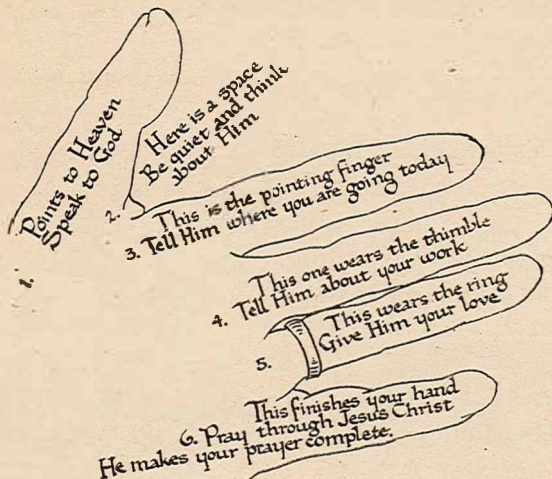 1. Points to Heaven
Speak to God
2. Here is a space
Be quiet and think
about Him
This is the pointing finger
3. Tell Him where you are going today
This one wears the thimble
4. Tell Him about your work
5. This wears the ring
Give Him your love
This finishes your hand
6. Pray through Jesus Christ
He makes your prayer complete.